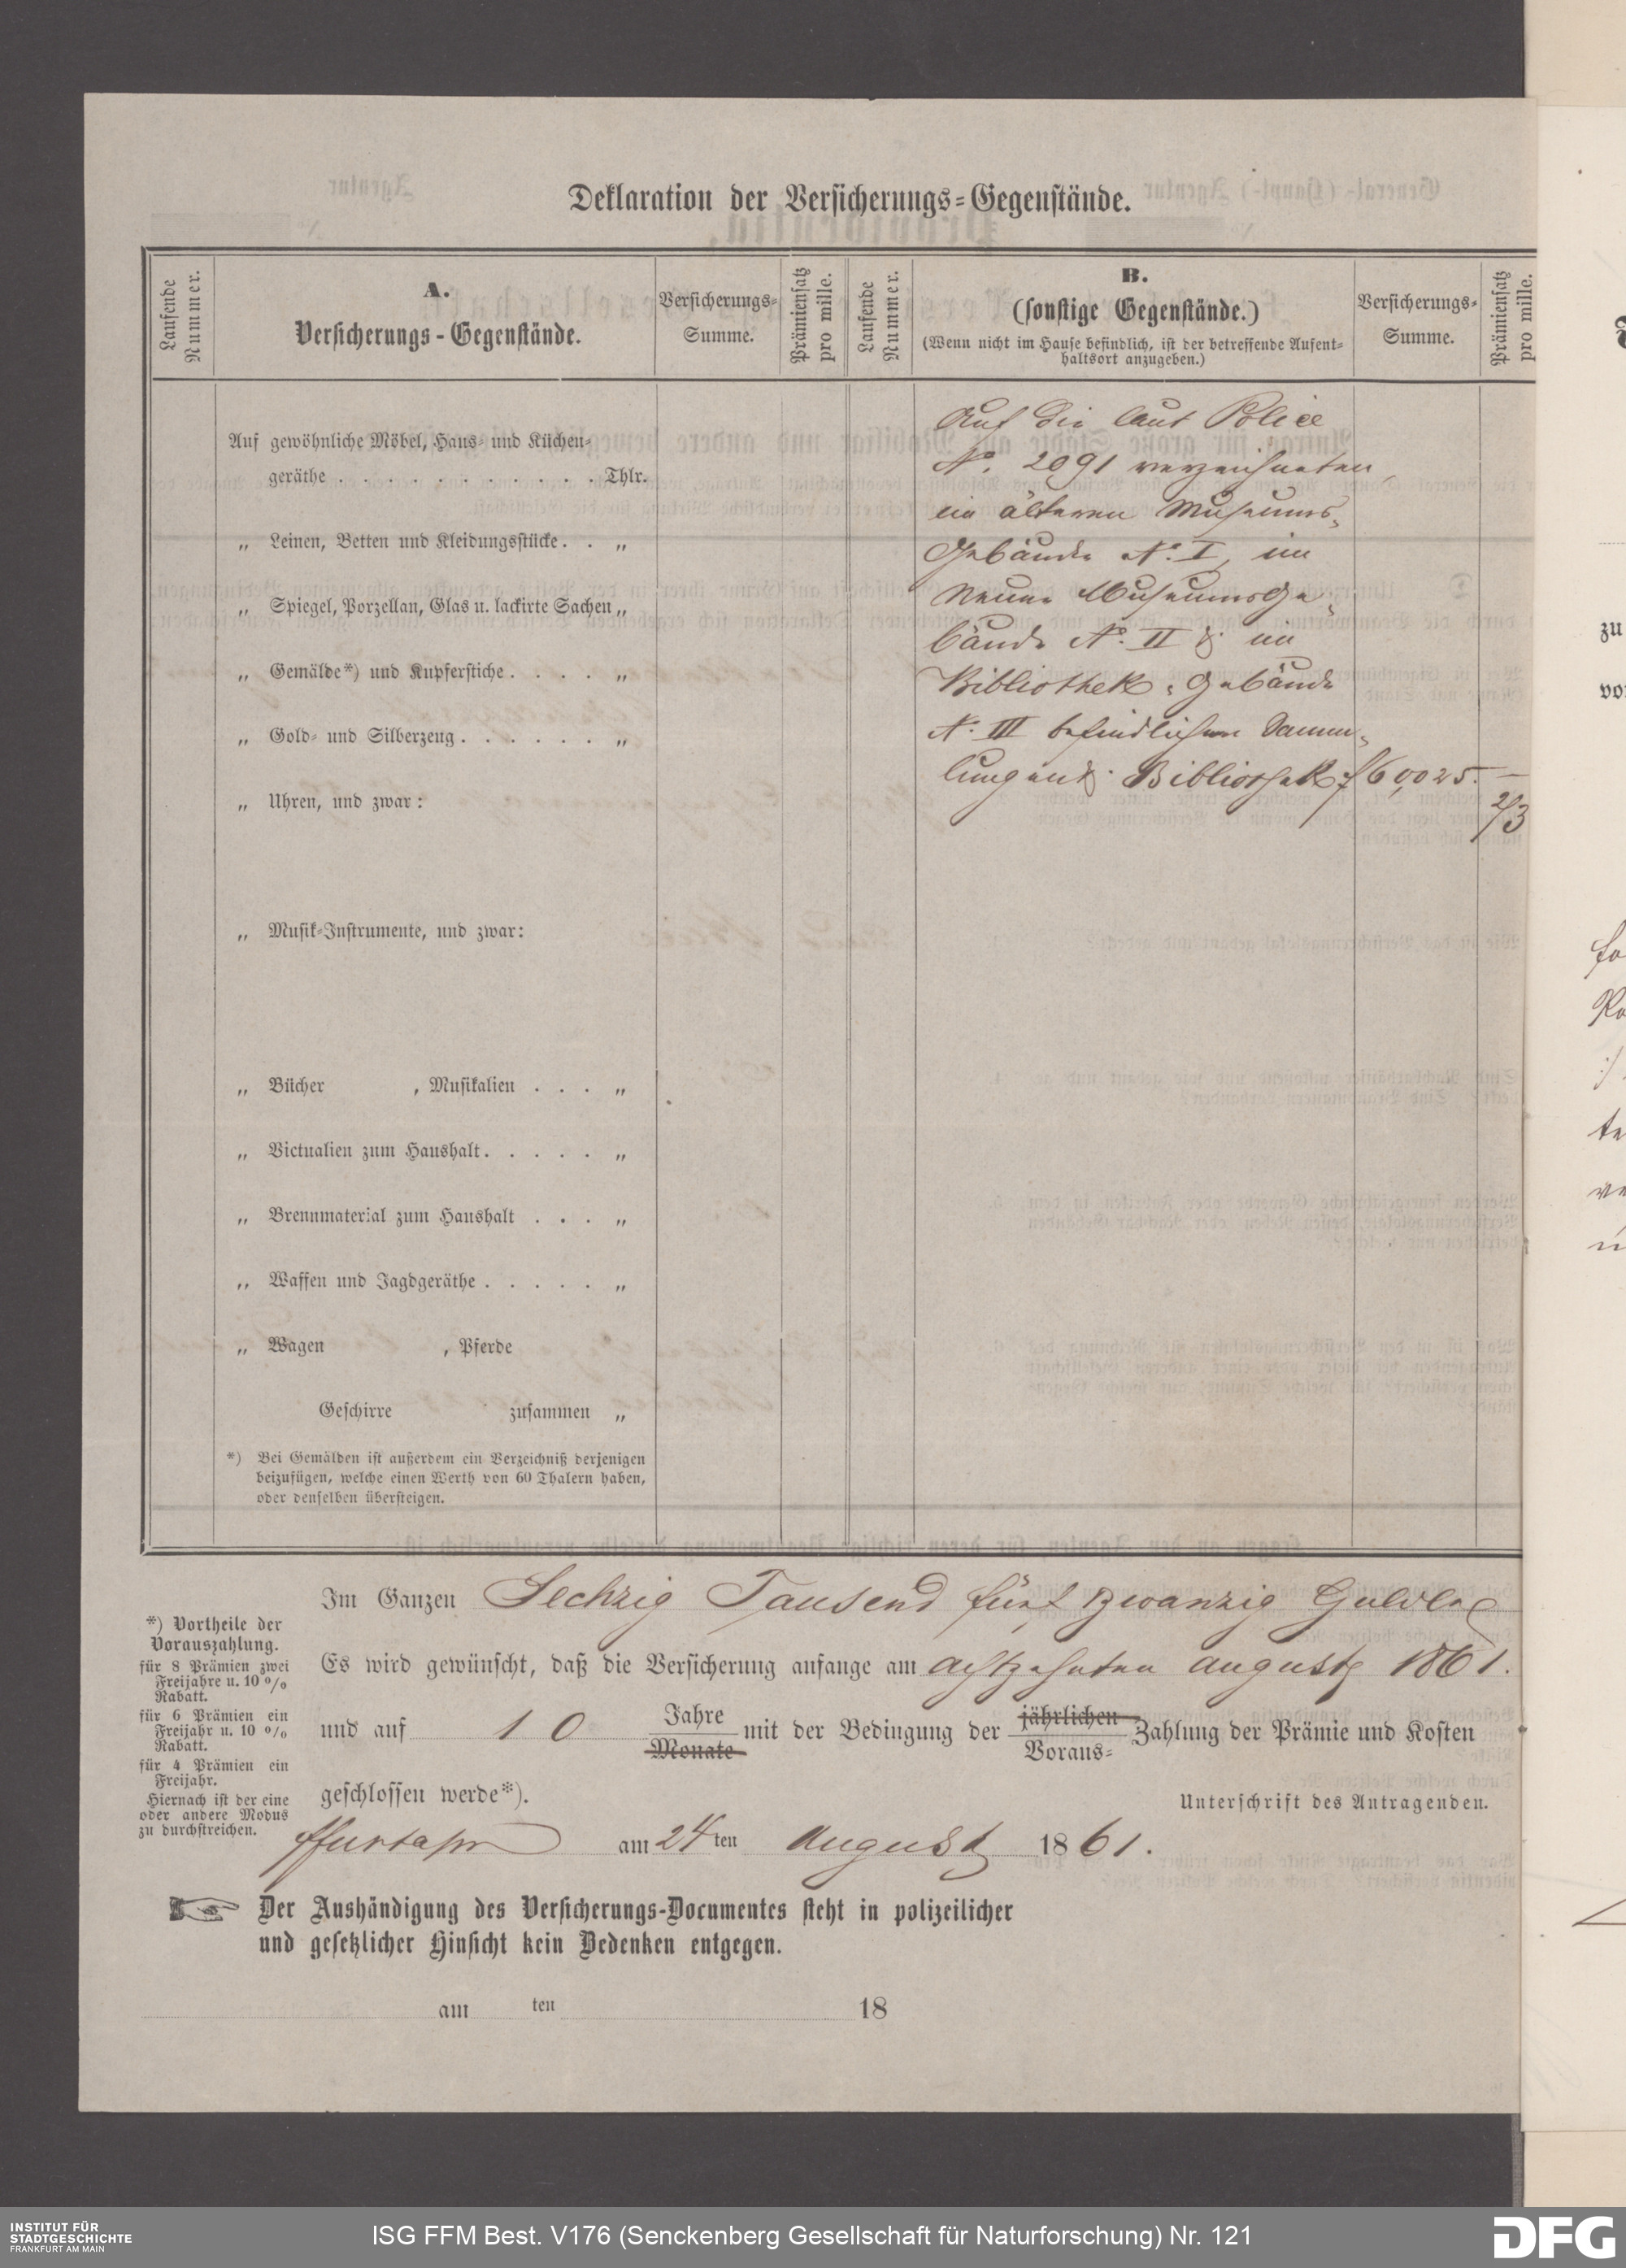 Deklaration der Versicherungs-Gegenstände.
Laufende Nummer.
A.
Versicherungs-Gegenstände.
Versicherungs-Summe.
Prämiensatz pro mille.
Laufende Nummer.
B.
(sonstige Gegenstände.)
(Wenn nicht im Hause befindlich, ist der betreffende Aufent-
haltsort anzugeben.)
Versicherungs-Summe.
Prämiensatz pro mille.
Auf gewöhnliche Möbel, Haus- und Küchen-
geräthe . . . . . . . . . . . Thlr.
„ Leinen, Betten und Kleidungsstücke . . „
„ Spiegel, Porzellan, Glas u. lackirte Sachen „
„ Gemälde*) und Kupferstiche . . . . „
„ Gold- und Silberzeug . . . . . . „
„ Uhren, und zwar:
„ Musik-Instrumente, und zwar:
„ Bücher , Musikalien . . . „
„ Victualien zum Haushalt . . . . . „
„ Brennmaterial zum Haushalt . . . „
„ Waffen und Jagdgeräthe . . . . . „
„ Wagen , Pferde
Geschirre zusammen „
*) Bei Gemälden ist außerdem ein Verzeichniß derjenigen
beizufügen, welche einen Werth von 60 Thalern haben,
oder denselben übersteigen.
Auf die laut Police
No. 2091 verzeichneten,
im älteren Museums-
Gebäude No. I, im
Neuen Museumsge-
bäude No. II & im
Bibliothek-Gebäude
No. III befindlichen Samm-
lungen & Bibliothek f 60,025.—
2/3
Im Ganzen Sechzig Tausend fünf zwanzig Gulden
Es wird gewünscht, daß die Versicherung anfange am achtzehnten August 1861.
und auf 10 Jahre Monate mit der Bedingung der jährlichen Voraus- Zahlung der Prämie und Kosten
geschlossen werde*).
Unterschrift des Antragenden.
*) Vortheile der
Vorauszahlung.
für 8 Prämien zwei
Freijahre u. 10 %
Rabatt.
für 6 Prämien ein
Freijahr u. 10 %
Rabatt.
für 4 Prämien ein
Freijahr.
Hiernach ist der eine
oder andere Modus
zu durchstreichen.
am 24ten August 1861.
Der Aushändigung des Versicherungs-Documentes steht in polizeilicher
und gesetzlicher Hinsicht kein Bedenken entgegen.
am ten 18
zu
INSTITUT FÜR
STADTGESCHICHTE
FRANKFURT AM MAIN
ISG FFM Best. V176 (Senckenberg Gesellschaft für Naturforschung) Nr. 121
DFG